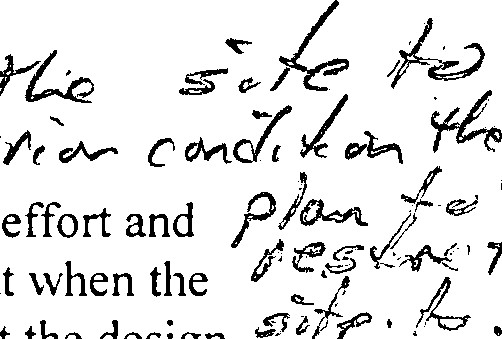 the site to
condition the
effort and plan to
when the
the design site. to